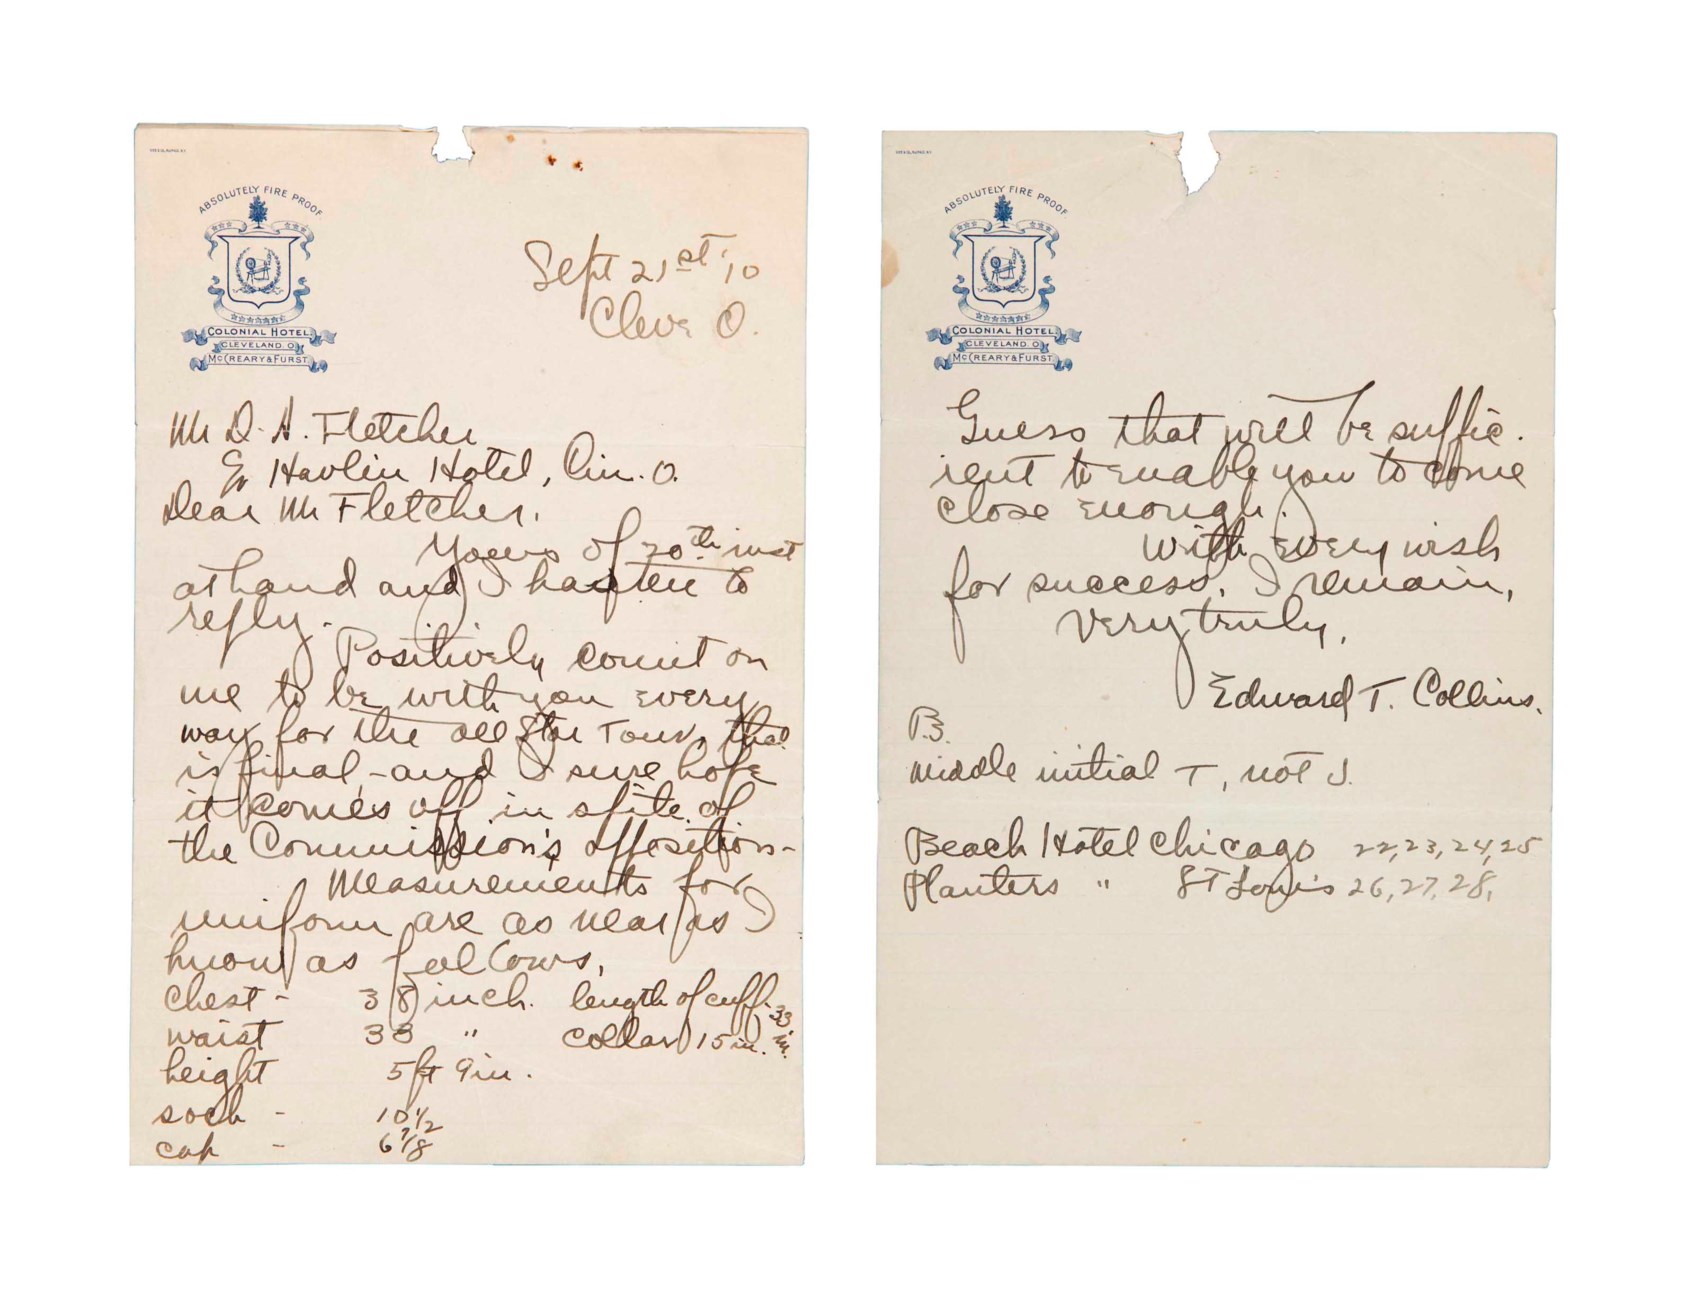 ABSOLUTELY FIRE PROOF
COLONIAL HOTEL.
CLEVELAND. O.
MCCREARY & FURST.
Sept 21st '10
Cleve O.
Mr D. A. Fletcher
Havlin Hotel, Cin. O.
Dear Mr Fletcher.
Yours of 20th inst
at hand and I hasten to
reply.
Positively count on
me to be with you every
way for the all Star Tour, that
is final, - and I sure hope
it comes off in spite of
the Commission's opposition -
Measurements for
uniform are as near as I
know as follows,
chest - 38 inch. length of cuff. 33 in.
waist 33 " collar 15 in.
height 5 ft 9 in.
sock - 10 1/2
cap - 6 7/8
ABSOLUTELY FIRE PROOF
COLONIAL HOTEL.
CLEVELAND. O.
MCCREARY & FURST.
Guess that will be suffic.
ient to enable you to come
close enough.
With every wish
for success, I remain,
Very truly,
Edward T. Collins.
P.S.
Middle initial T, not J.
Beach Hotel Chicago 22, 23, 24, 25
Planters " St Louis 26, 27, 28,